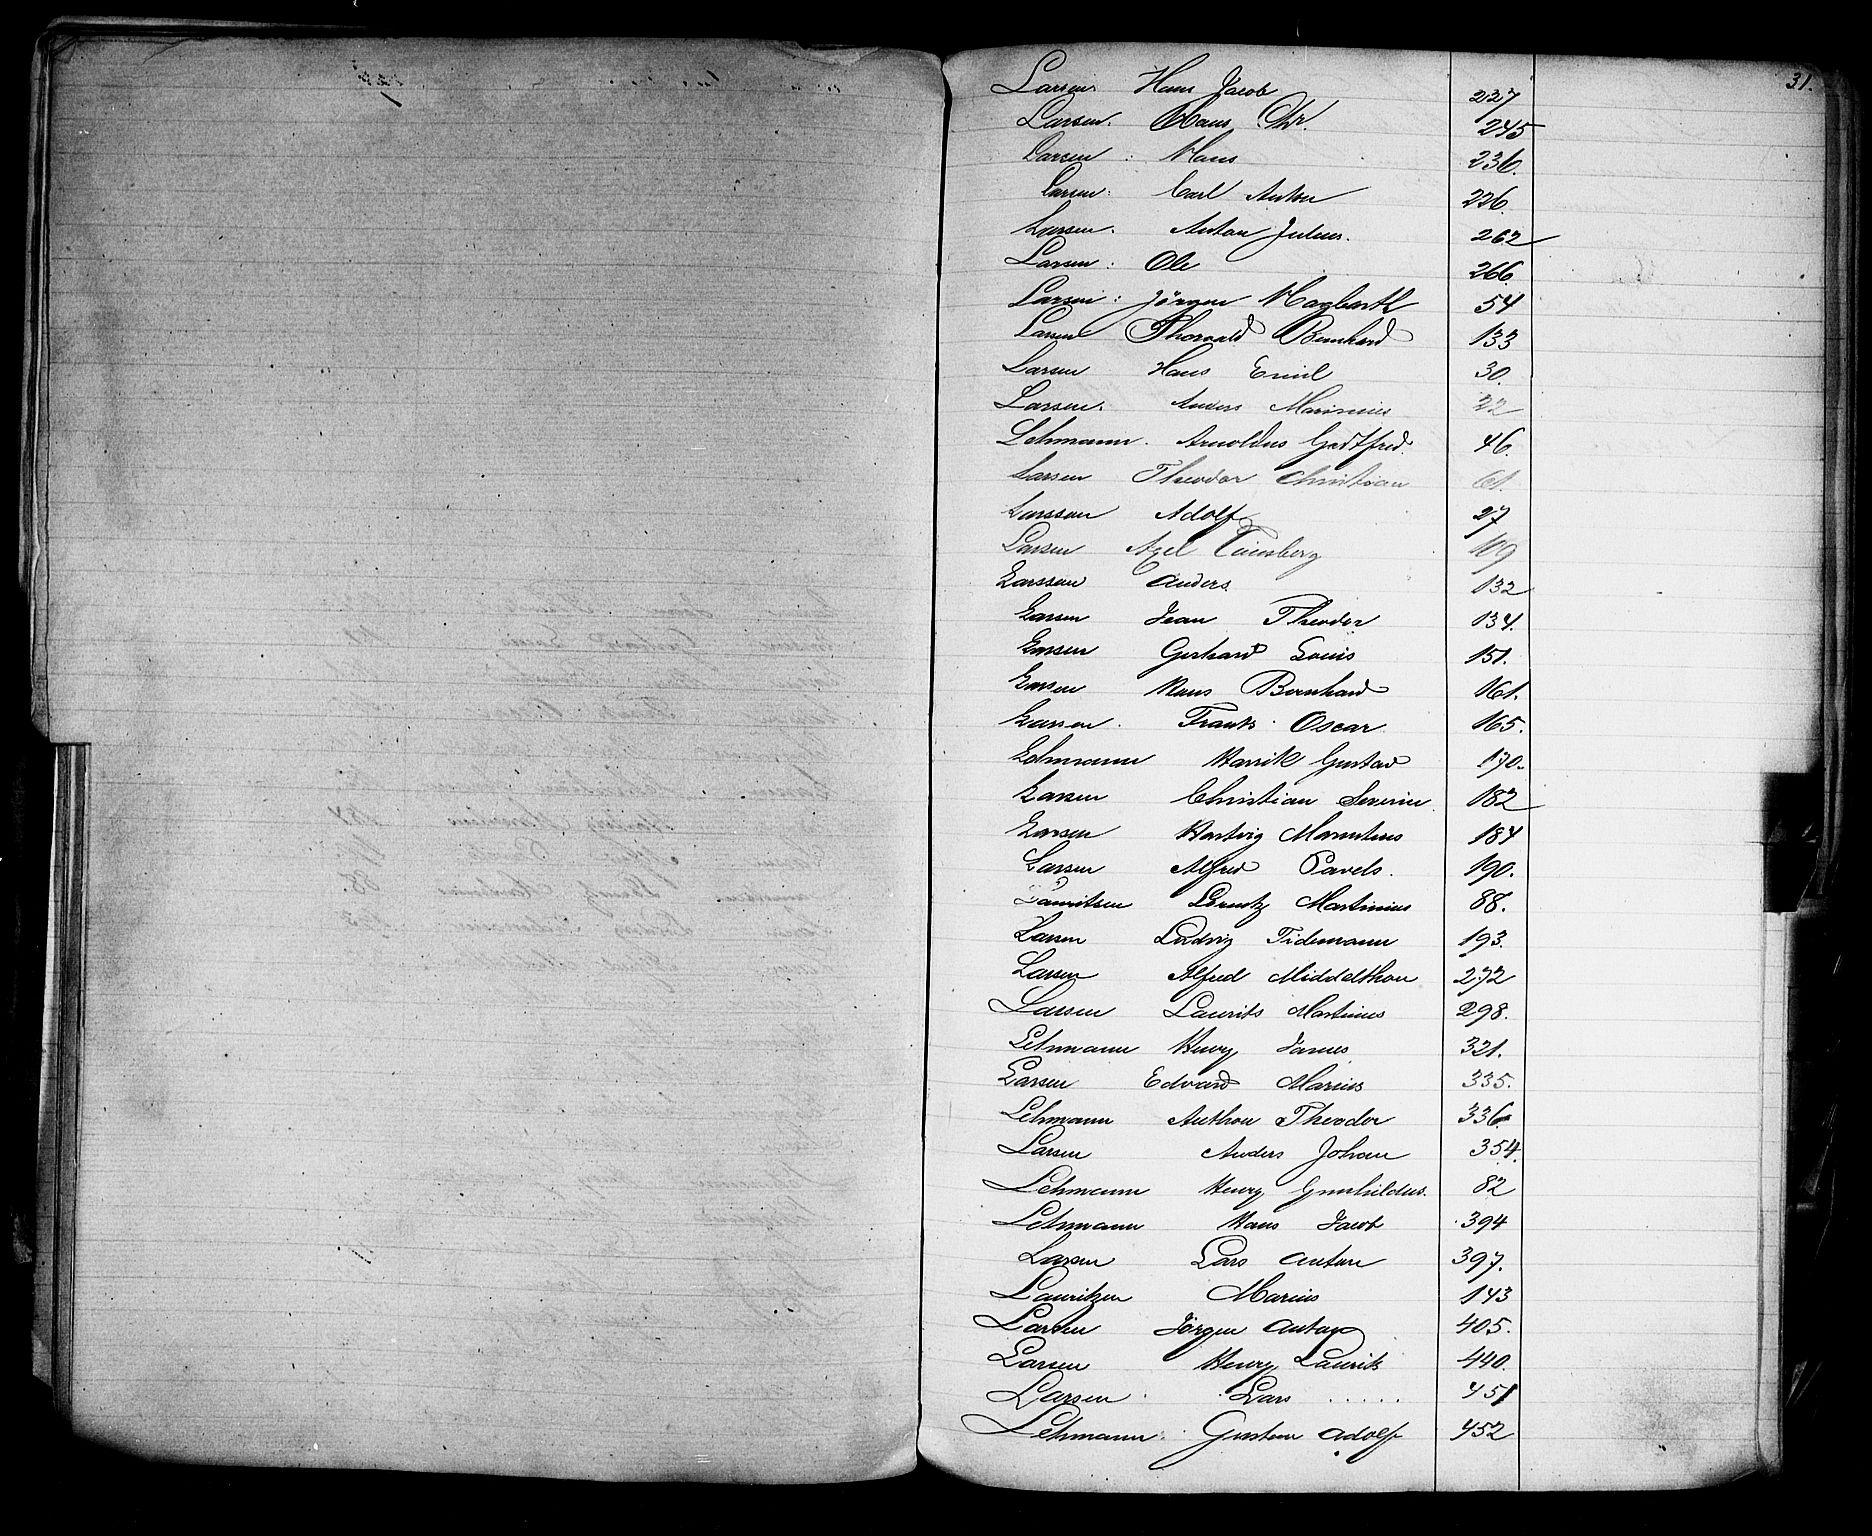 31.
Larsen Hans Jacob 227
Larsen. Hans Chr. 245
Larsen : Hans 236.
Larsen: Carl Anton 226.
Larsen. Anton Julius. 262
Larsen: Ole 266.
Larsen: Jörgen Hagbarth 54
Larsen Thorvald Bernhard 133
Larsen Hans Emil 30.
Larsen. Anders Marinius 22
Lehmann. Arnoldus Godtfred. 46.
Larsen Theodor Christian 61.
Larsson Adolf 27
Larsen Axel 109
Larsson Anders. 132
Larsen Jean Theodor 134.
Larsen Gerhard Louis 151.
Larsen Hans Bernhard 161.
Larsen. Frantz Oscar 165.
Lehmann Henrik Gustav 170.
Larsen Christian Severin 182
Larsen Hartvig Marentius 184
Larsen Alfred Pavels. 190.
Lauritsen Lorentz Martinius 88.
Larsen Ludvig Tidemann 193.
Larsen Alfred Middelthon 272
Larsen Laurits Martinius 298.
Lehmann Henry James 321.
Larsen Edvard Marius 335.
Lehmann Anthon Theodor 336
Larsen Anders Johan 354.
Lehmann Henry 82
Lehmann Hans Jacob 394
Larsen Lars Anton 397.
Lauritzen Marius 143
Larsen Jörgen Anton 405.
Larsen Henry Laurits 440.
Larsen Lars ..... 451
Lehmann. Gustav Adolf 452